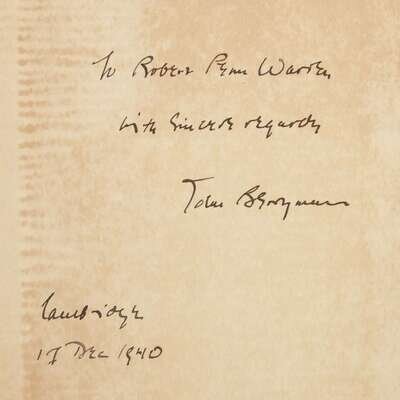 To Robert Penn Warren
with sincere regards
John Berryman
Cambridge
17 Dec 1940